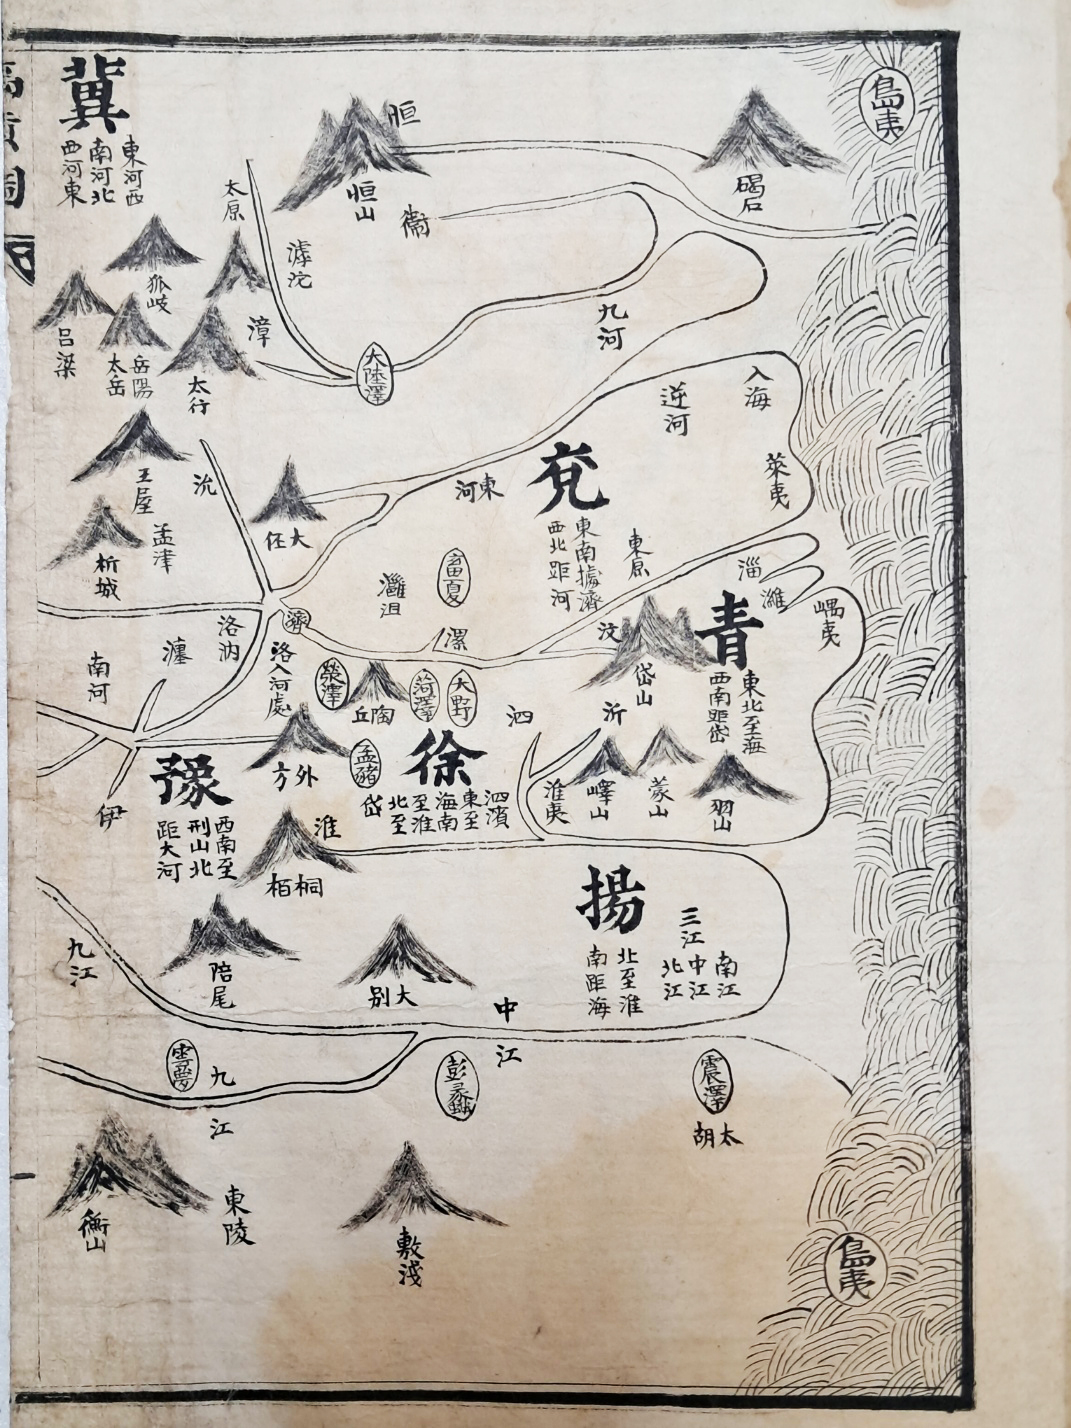 冀
東河西
南河北
西河東
恒
恒山
衞
碣石
島夷
太原
滹沱
狐岐
呂梁
岳陽
太岳
漳
太行
大陸澤
九河
逆河
入海
萊夷
兗
東南據濟
西北距河
東河
東原
王屋
沇
大伾
析城
孟津
灉沮
雷夏
濟
漯
汶
淄
濰
嵎夷
青
東北至海
西南距岱
岱山
洛汭
瀍
南河
洛入河處
滎澤
陶丘
菏澤
大野
泗
沂
伊
豫
西南至
刑山北
距大河
外方
孟豬
徐
泗濱
東至
海南
至淮
北至
岱
淮夷
嶧山
蒙山
羽山
淮
桐栢
揚
北至淮
南距海
三江
南江
中江
北江
九江
陪尾
大別
中江
雲夢
九江
彭蠡
震澤
太胡
衡山
東陵
敷淺
島夷